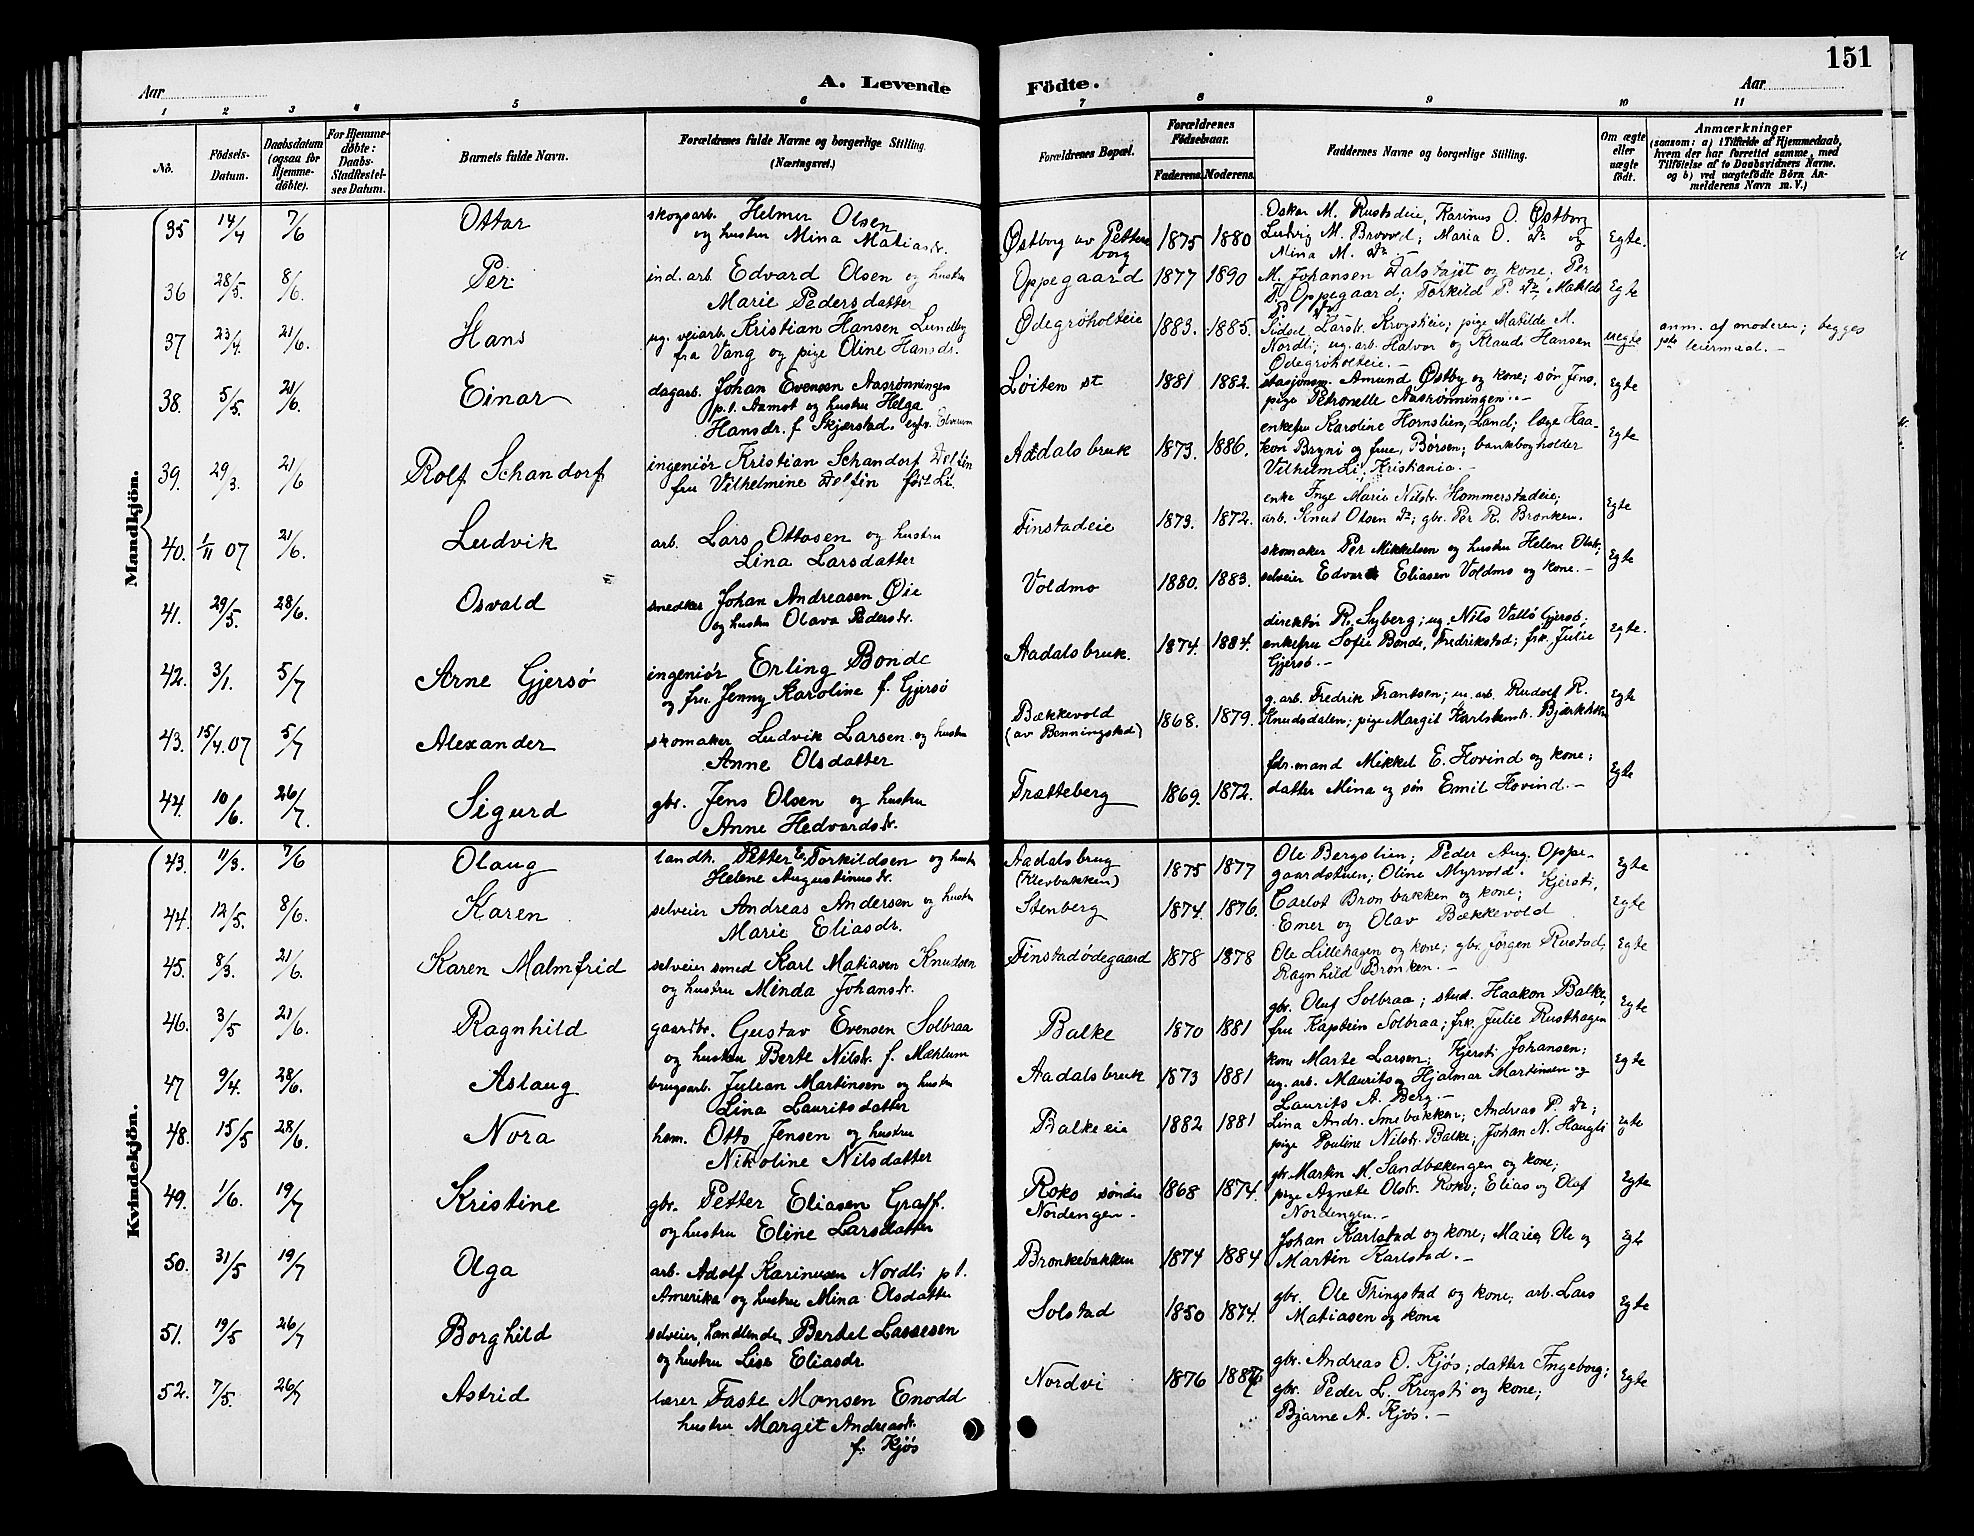 151
Aar
A. Levende Födte.
Aar
1 2 3 4 5 6 7 8 9 10 11
No.
Födsels-Datum.
Daabsdatum (ogsaa för Hjemme-döbte).
For Hjemme-döbte: Daabs-Stadfæstel-ses Datum.
Barnets fulde Navn.
Forældrenes fulde Navne og borgerlige Stilling. (Næringsvei.)
Forældrenes Bopæl.
Forældrenes Födselsaar.
Faderens. Moderens.
Faddernes Navne og borgerlige Stilling.
Om ægte eller uægte födt.
Anmærkninger
(saasom: a) i Tilfælde af Hjemmedaab, hvem der har forrettet samme, med Tilföielse af to Daabsvidners Navne. og b) ved uægtefödte Börn An-melderens Navn m. V.)
Mandkjön.
35 14/4 7/6 Ottar skogsarb. Helmer Olsen
og hustru Mina Matiasdr.
Østborg av Petters
borg 1875 1880
Oskar M. Rustadeie, Karinus O. Østborg
Ludvig M. Brovold; Maria O. do og
Mina M. do. — Egte.
36 28/5. 8/6. Per ind. arb. Edvard Olsen og hustru
Marie Pedersdatter
Oppegaard 1877 1890
M. Johansen Dalstøjet og kone; Per
P. Oppegaard; Torkild P. do, Matilde
P. do Egte
37 23/4. 21/6. Hans ug. veiarb. Kristian Hansen Lundby
fra Vang og pige Oline Hansdr.
Ødegrøholteie 1883. 1885.
Sidsel Larsdr. Krogstieie; pige Matilde M.
Nordli; ug. arb. Halvor og Klaude Hansen
Ødegrøholteie. — uegte
anm. af moderen; begges
1ste leiermaal. —
38. 5/5. 21/6. Einar dagarb. Johan Evensen Aasrønningen
p.t. Aamot og hustru Helga
Hansdr. f. Skjærstad. egtv. Elverum
Løiten st 1881 1882.
stasjonsm. Amund Østby og kone; søn Jens.
pige Petronelle Aasrønningen. — Egte
39. 29/3. 21/6 Rolf Schandorf ingeniør Kristian Schandorf Delfin
fru Vilhelmine Delfin født Li.
Aadalsbruk 1873. 1886.
enkefru Karoline Hornslien, Land; læge Haa-
kon Bryni og frue, Børsen; bankbogholder
Vilhelm Li, Kristiania. — Egte
40. 1/11 07 21/6. Ludvik arb. Lars Ottosen og hustru
Lina Larsdatter
Finstadeie 1873. 1872.
enke Inge Marie Nilsdr. Hommerstadeie;
arb. Knut Olsen do; gbr. Per R. Bronken. Egte
41. 29/5. 28/6. Osvald snedker Johan Andreasen Øie
og hustru Olava Pedersdr.
Voldmo 1880. 1883.
skomaker Per Mikkelsen og hustru Helene Olsdr;
selveier Edvard Eliasen Voldmo og kone. — Egte
42. 3/1. 5/7 Arne Gjersø ingeniør Erling Bonde
og fru Jenny Karoline f. Gjersø
Aadalsbruk. 1874. 1884.
direktør R. Syberg; ug. Nils Vallø Gjersø;
enkefru Sofie Bonde, Fredrikstad; frk. Julie
Gjersø. — Egte.
43. 15/4. 07 5/7 Alexander skomaker Ludvik Larsen og hustru
Anne Olsdatter
Bækkevold
(av Benningstad) 1868. 1879.
g. arb. Fredrik Frantsen; u. arb. Rudolf R.
Knudsdalen; pige Margit Karlsdr. Egte
44. 10/6. 26/7. Sigurd gbr. Jens Olsen og hustru
Anne Hedvardsdr.
Trætteberg 1869. 1872.
fdr.mand Mikkel E. Hovind og kone;
datter Mina og søn Emil Hovind. — Egte
Kvindekjön.
43. 11/3. 7/6 Olaug landh. Petter E. Torkildsen og hustru
Helene Augustinusdr.
Aadalsbrug
(Klevbakken) 1875 1877
Ole Bergslien; Peder Aug. Oppe-
gaardstuen; Oline Myrvold. Egte
44. 12/5. 8/6. Karen selveier Andreas Andersen og hustru
Marie Eliasdr.
Stenberg 1874. 1876.
Carlot Bronbakken og kone; Kjersti,
Emer og Olav Bækkevold Egte
45. 8/3. 21/6. Karen Malmfrid selveier smed Karl Matiasen Knudsen
og hustru Minda Johansdr.
Finstadødegaard 1878 1878
Ole Lillehagen og kone; gbr. Jørgen Rustad,
Ragnhild Bronken. — Egte
46. 3/5 21/6. Ragnhild gaardbr. Gustav Evensen Solbraa
og hustru Berte Nilsdr. f. Mæhlum
Balke 1870 1881
gbr. Oluf Solbraa; stud. Haakon Balke,
fru Kaptein Solbraa; frk. Julie Rusthagen Egte
47 9/4. 28/6. Aslaug brugsarb. Julian Martinsen og hustru
Lina Lauritsdatter
Aadalsbruk 1873 1881
kone Marte Larsen; Kjersti Johansen;
ug. arb. Maurits og Hjalmar Martinsen og
Laurits A. Berg. — Egte
48. 15/5 28/6. Nora hsm. Otto Jensen og hustru
Nikoline Nilsdatter
Balkeeie 1882 1881
Lina Andr. Smebakken; Andreas P. do;
pige Pouline Nilsdr. Balke; Johan N. Haugli Egte
49. 1/6. 19/7 Kristine gbr. Petter Eliasen Graff.
og hustru Eline Larsdatter
Roko søndre
Nordengen. 1868 1874.
gbr. Martin M. Sandbækengen og kone;
pige Agnete Olsdr. Roko; Elias og Oluf
Nordengen. — Egte
50. 31/5 19/7 Olga arb. Adolf Karinusen Nordli p.t.
Amerika og hustru Mina Olsdatter
Bronkebakken 1874 1884
Johan Karlstad og kone; Marie, Ole og
Martin Karlstad. — Egte
51. 19/5 26/7 Borghild selveier, handlende Bertel Lassesen
og hustru Lise Eliasdr.
Solstad 1850 1874.
gbr. Ole Thingstad og kone; arb. Lars
Matiasen og kone Egte
52. 7/5. 26/7 Astrid lærer Faste Monsen Enodd
hustru Margit Andreasdr.
f. Kjøs
Nordvi 1876
gbr. Andreas O. Kjøs; datter Ingeborg;
gbr. Peder L. Krogsti og kone;
Bjarne A. Kjøs. — Egte